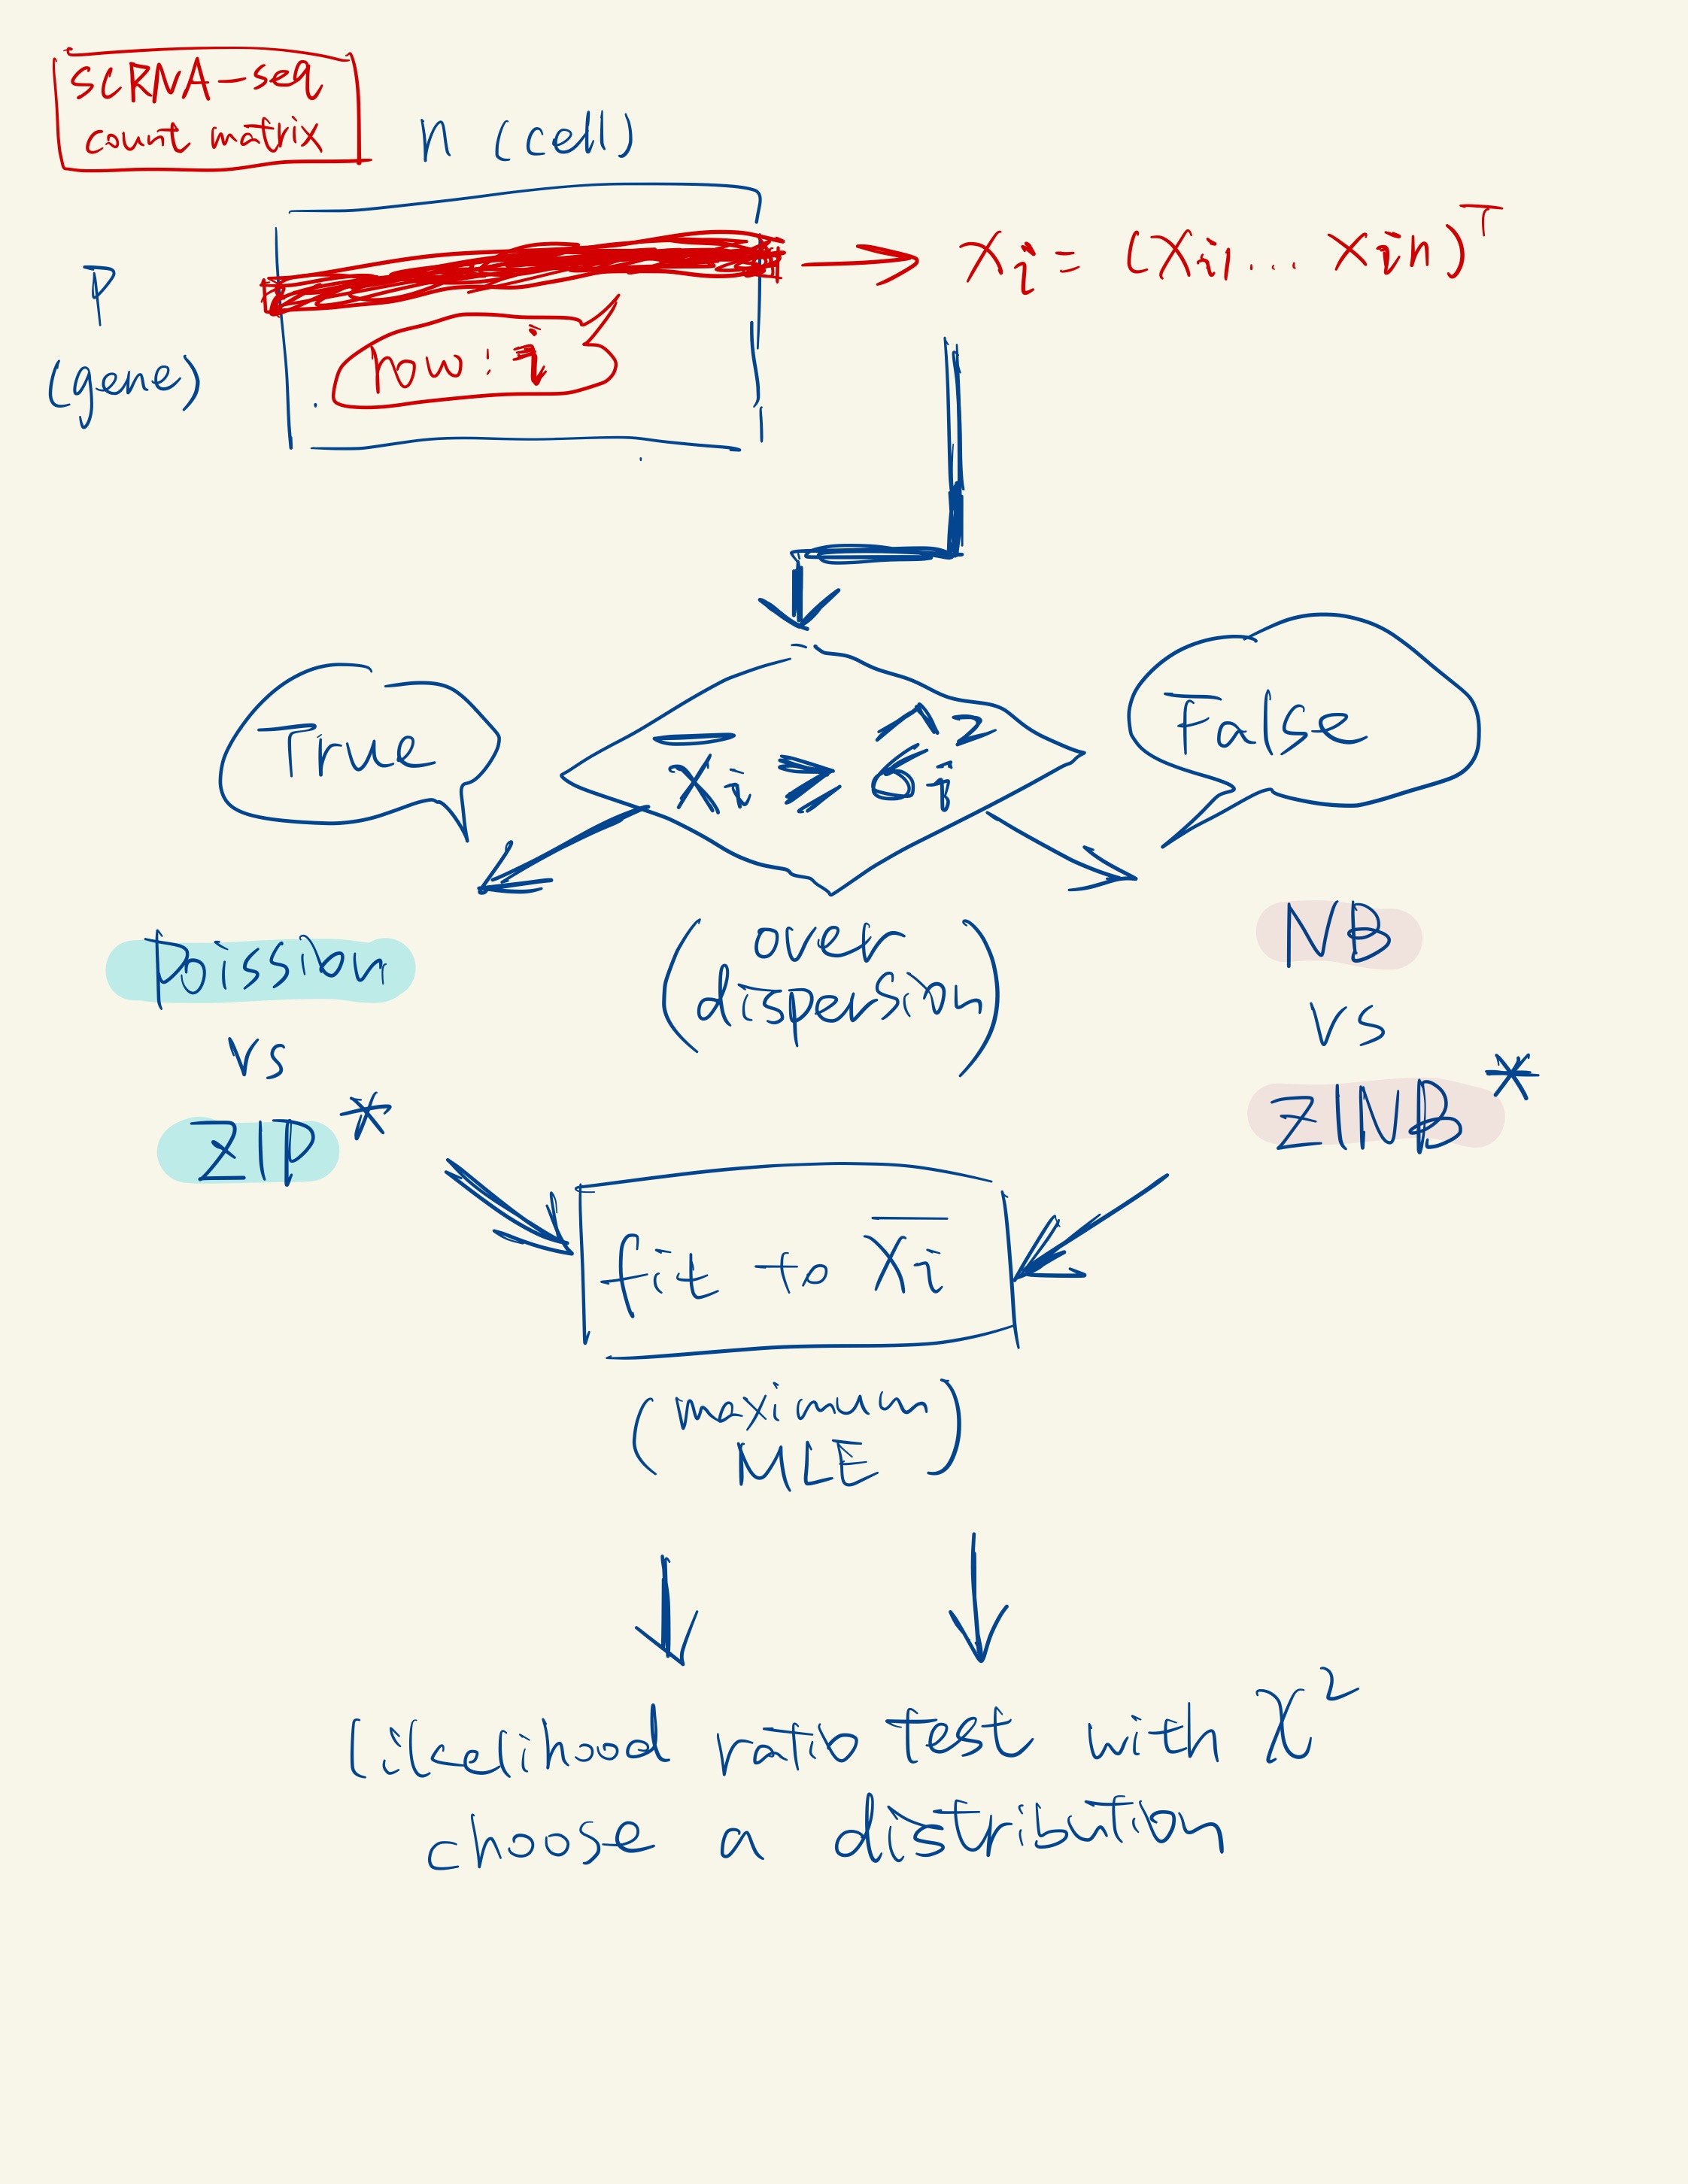 SCRNA-seq
count matrix
n (cell)
p
(gene)
row: i
Xi = (Xi1 ... Xin)^T
True
X̄i ≥ σ̂i²
False
Poission
vs
ZIP*
(over
dispersion)
NB
vs
ZINB*
fit to X̄i
(maximum
MLE)
Likelihood ratio test with χ²
choose a distribution